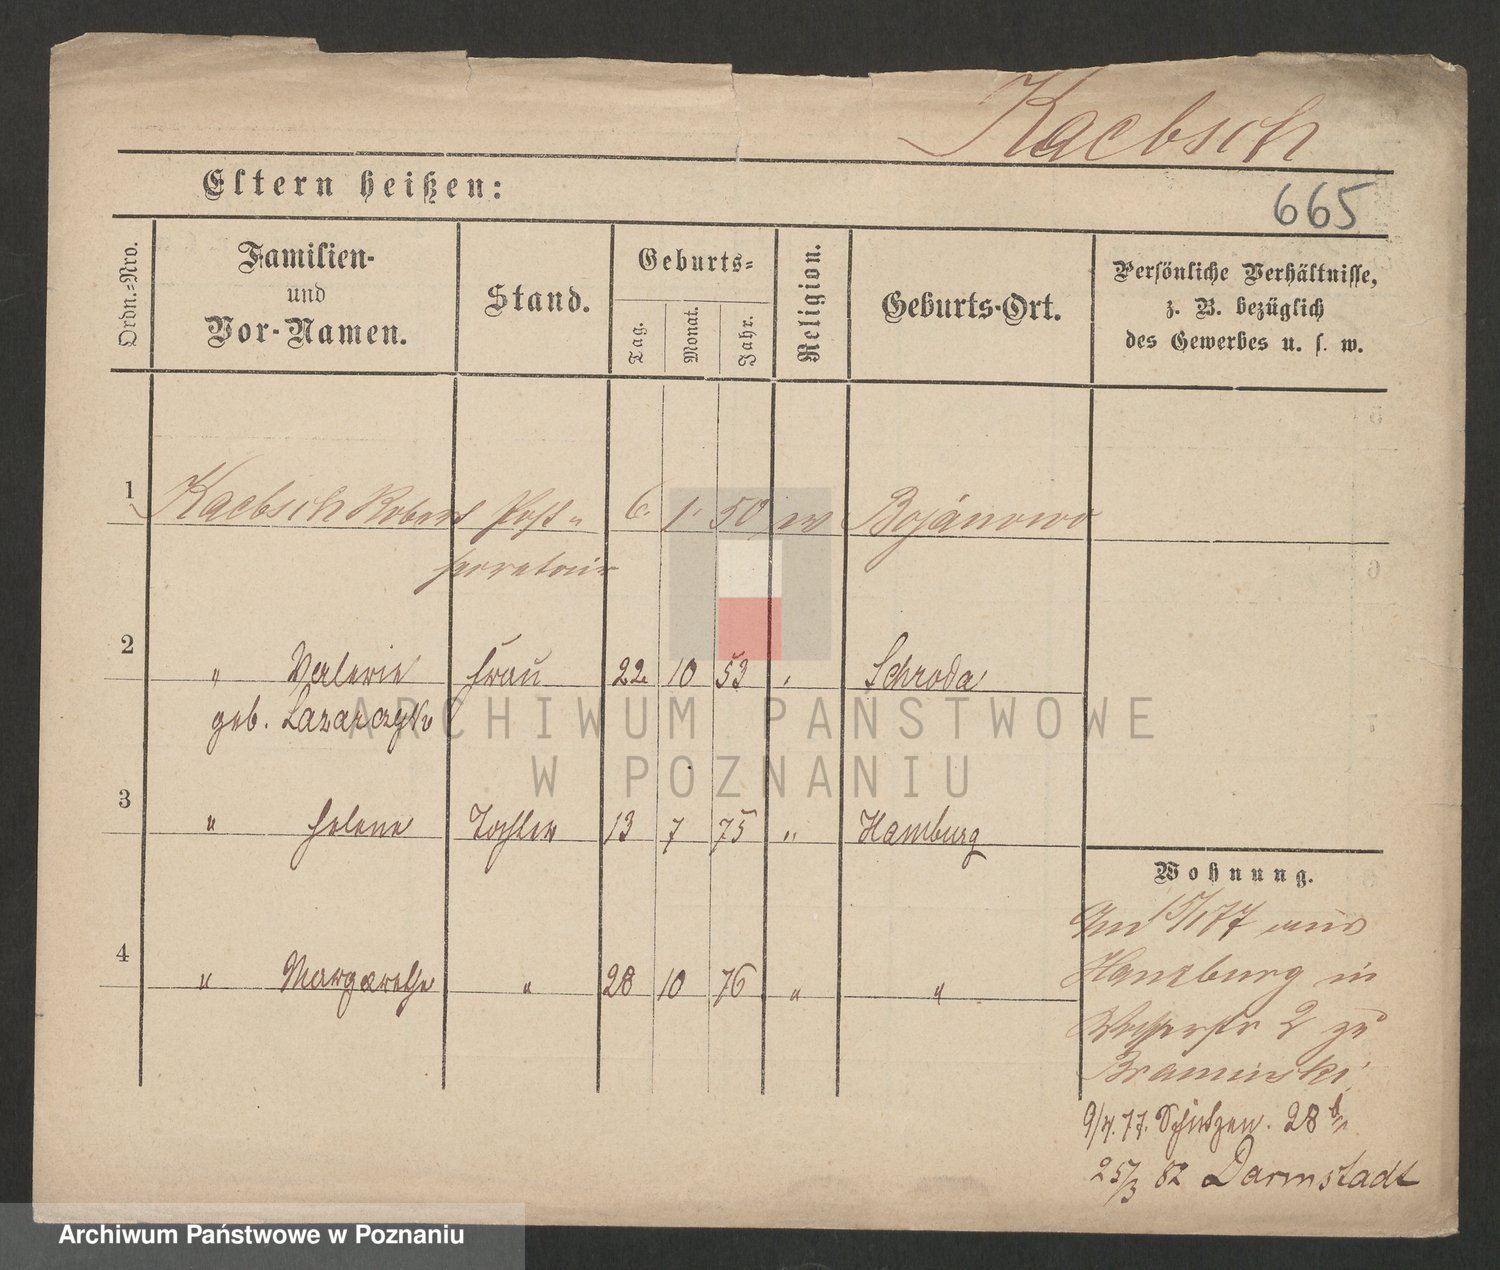 Kaebsch
Eltern heißen:
665
Ordn.-Nro.
Familien-
und
Vor-Namen.
Stand.
Geburts-
Tag.
Monat.
Jahr.
Religion.
Geburts-Ort.
Persönliche Verhältnisse,
z. B. bezüglich
des Gewerbes u. s. w.
1 Kaebsch Robert Post- 6. 1. 50 ev Bojánowo
secretair
2 " Valerie Frau 22. 10 53 " Schroda
geb. Lazarczyk
3 " Helene Tochter 13 7 75 " Hamburg
4 " Margarethe " 28 10 76 " "
Wohnung.
77 aus
Hamburg in
2 zu
Braminski
9/4. 77. Schützen. 28
25/3 82 Darmstadt
ARCHIWUM PAŃSTWOWE
W POZNANIU
Archiwum Państwowe w Poznaniu